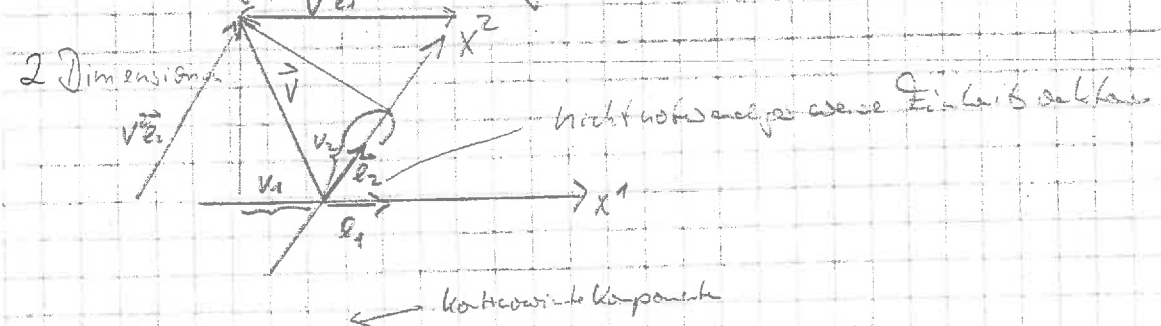 X²
2 Dimensionen
V⃗
V²e⃗₂
v₂
e₂
nicht notwendigerweise Einheitsvektoren
v₁
x¹
e₁
kontravariante Komponente